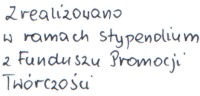 Zrealizowano
w ramach stypendium
z Funduszu Promocji
Twórczości